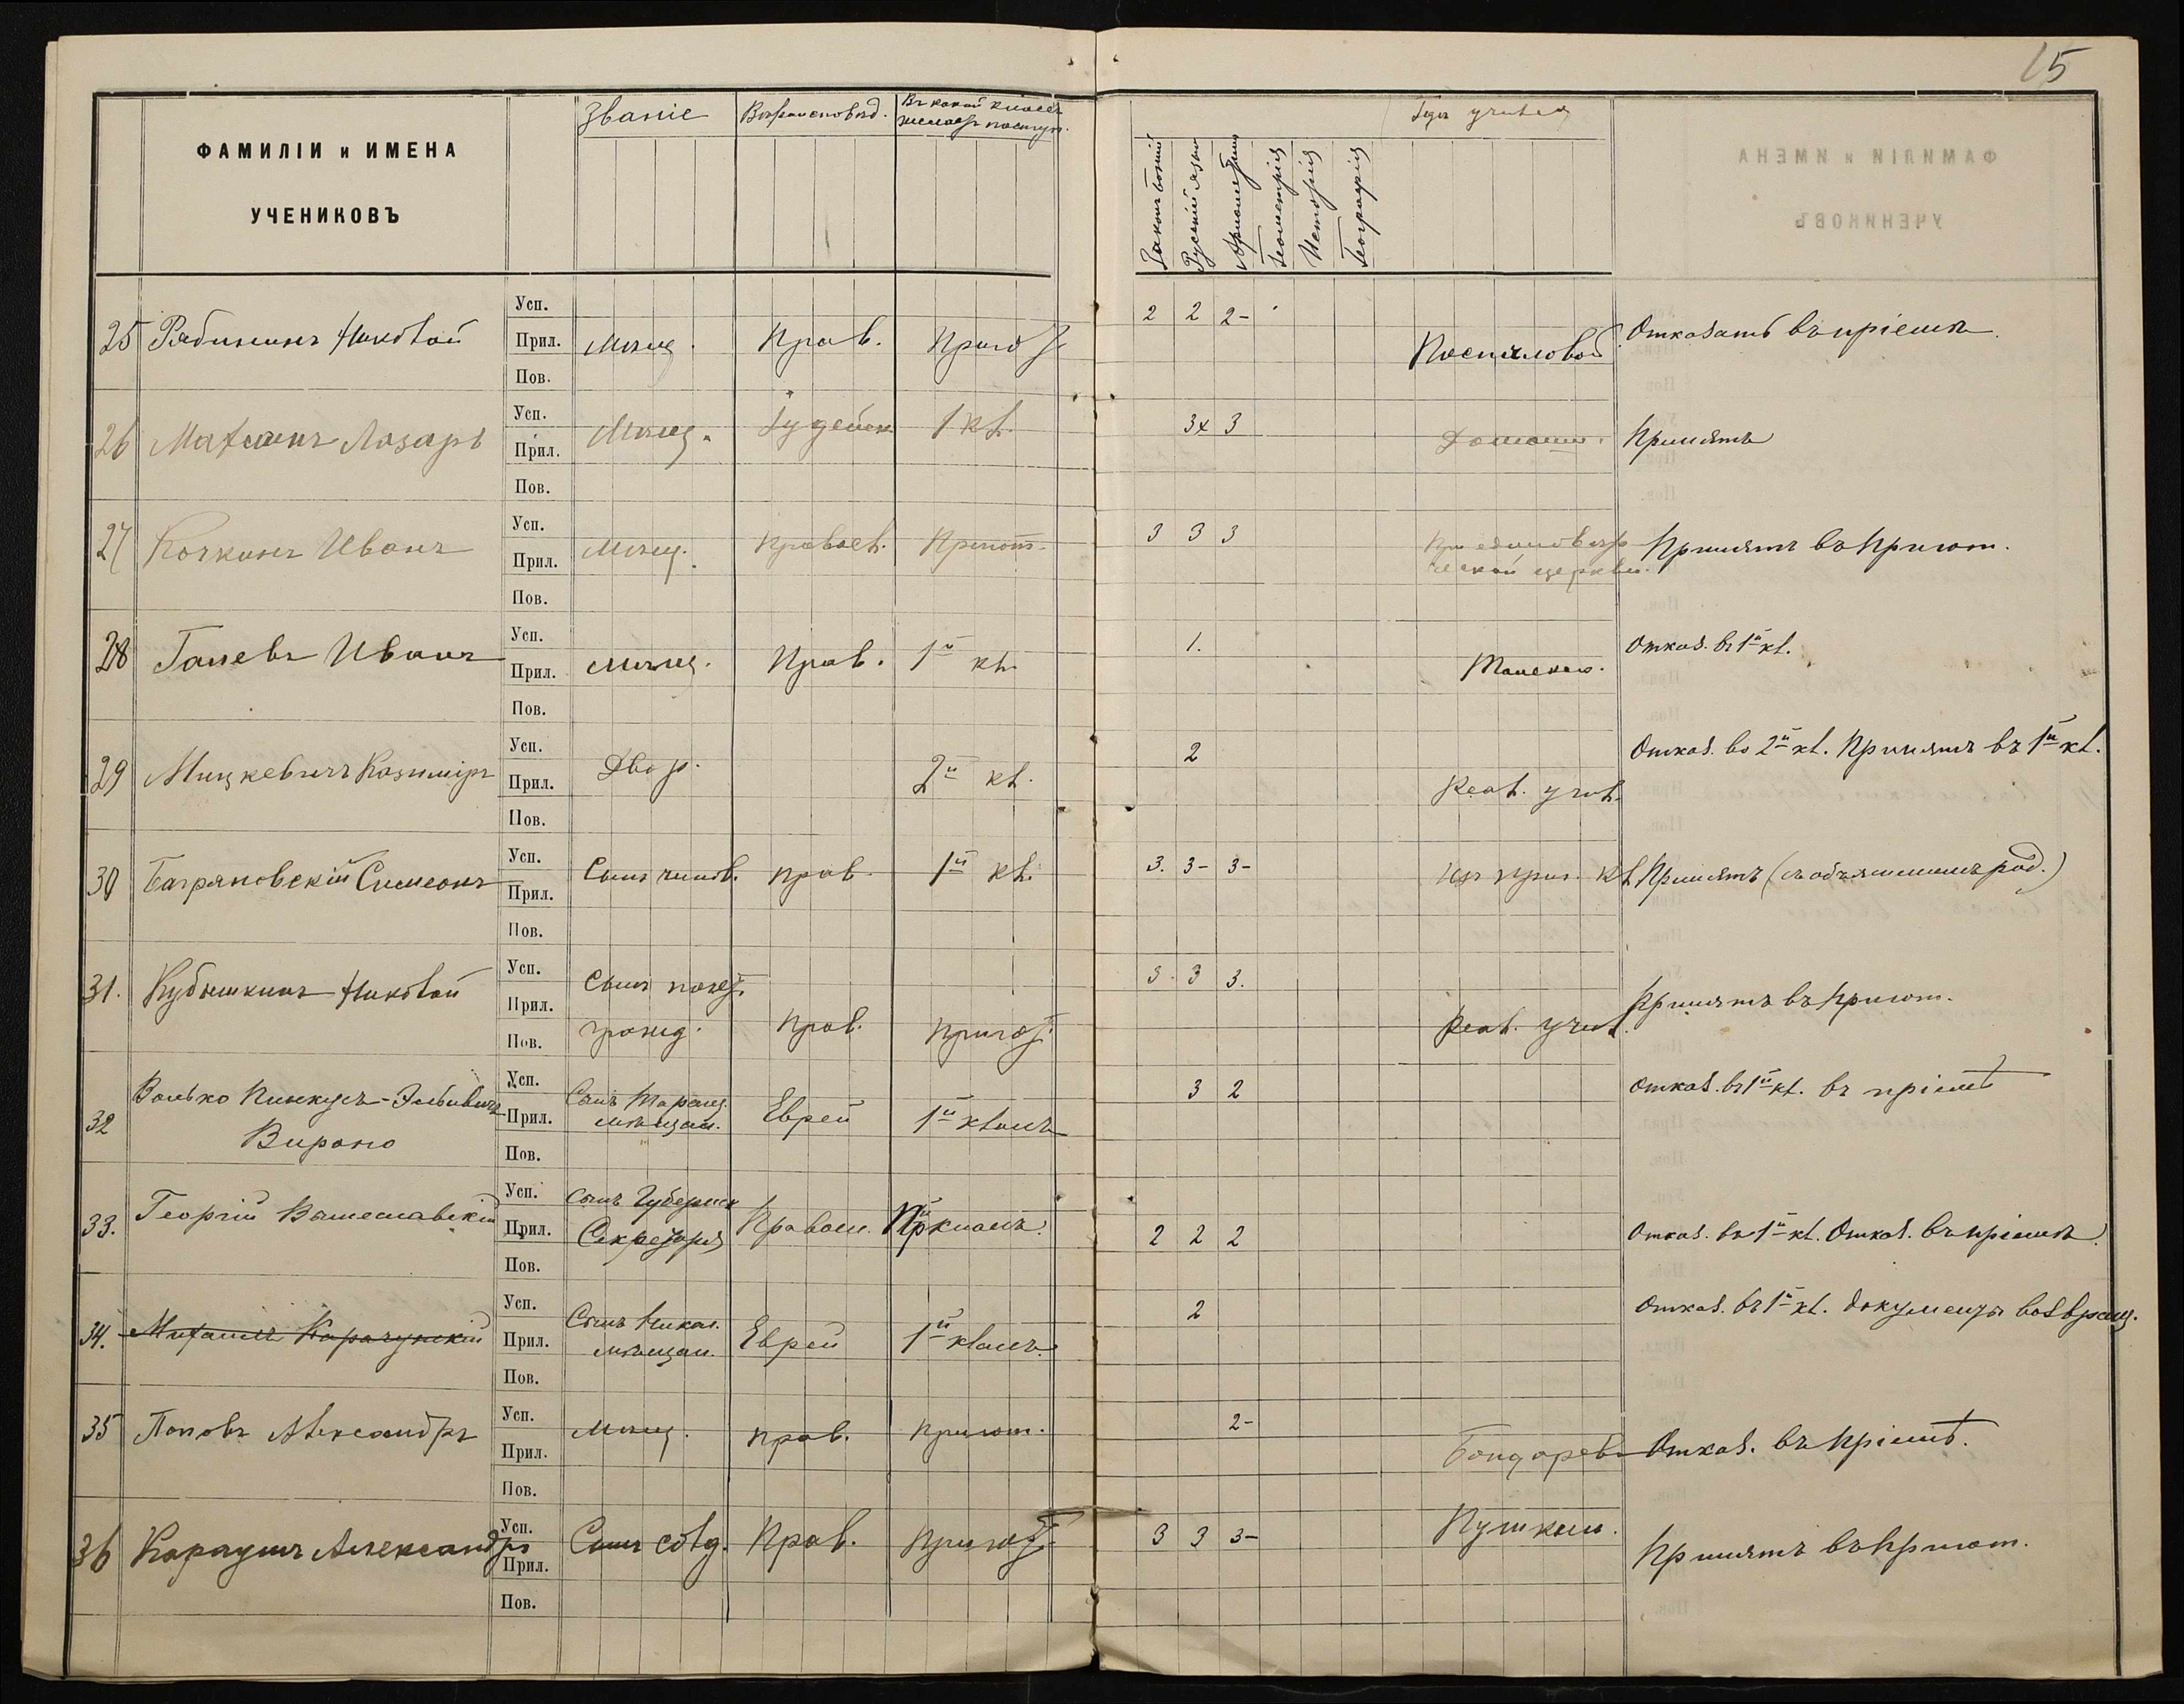 15
ФАМИЛІИ и ИМЕНА
УЧЕНИКОВЪ
Званіе
Вѣроисповѣд.
Въ какой классъ
желаетъ поступ.
Законъ Божій
Русскій языкъ
Ариѳметика
Геометрія
Исторія
Географія
Гдѣ учился
25 Рябининъ Николай Усп. Прил. Пов. Мѣщ. Прав. Пригот. 2 2 2- Отказать въ пріемѣ.
26 Лазарь Усп. Прил. Пов. Мѣщ. Іудейск. 1 кл. 3х 3 Домашн. Принять
27 Кочкинъ Иванъ Усп. Прил. Пов. Мѣщ. Правосл. Пригот. 3 3 3 При единовѣр-
ческой церкви. Принять въ пригот.
28 Ганевъ Иванъ Усп. Прил. Пов. Мѣщ. Прав. 1й кл. 1. Отказ. въ 1й кл.
29 Мицкевичъ Казиміръ Усп. Прил. Пов. Двор. 2й кл. 2 Реал. учил. Отказ. во 2й кл. Принять въ 1й кл.
30 Багряновскій Симеонъ Усп. Прил. Пов. Сынъ чинов. прав. 1й кл. 3. 3- 3- Изъ приг. кл. Принять (съ объясненіемъ род.)
31. Кубышкинъ Николай Усп. Прил. Пов. Сынъ почет.
гражд. прав. пригот. 3. 3 3. Реал. учил. Принять въ пригот.
32 Волько Пинкусъ-
Усп. Прил. Пов. Сынъ
мѣщан. Еврей 1й классъ 3 2 Отказ. въ 1й кл. въ пріемѣ
33. Георгій Вышеславскій Усп. Прил. Пов. Сынъ Губернск.
Секретаря Правосл. классъ. 2 2 2 Отказ. въ 1й кл. Отказ. въ пріемѣ.
34. Михаилъ Карачунскій Усп. Прил. Пов. Сынъ Никол.
мѣщан. Еврей 1й классъ. 2 Отказ. въ 1й кл. документы возвращ.
35 Поповъ Александръ Усп. Прил. Пов. Мѣщ. прав. пригот. 2- Бондаревъ Отказ. въ пріемѣ.
36 Караушъ Александръ Усп. Прил. Пов. Сынъ солд. Прав. пригот. 3 3 3- Пушкин. Принять въ пригот.